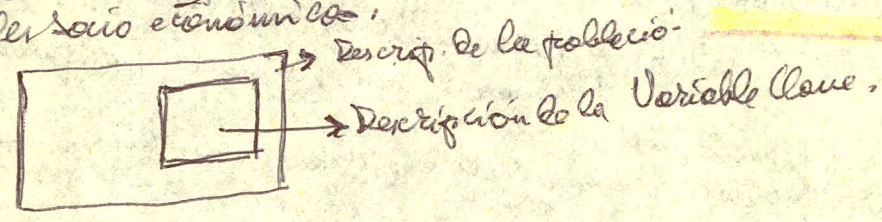 socio económicos.
Descrip. de la població-
Descripción de la Variable Clave.